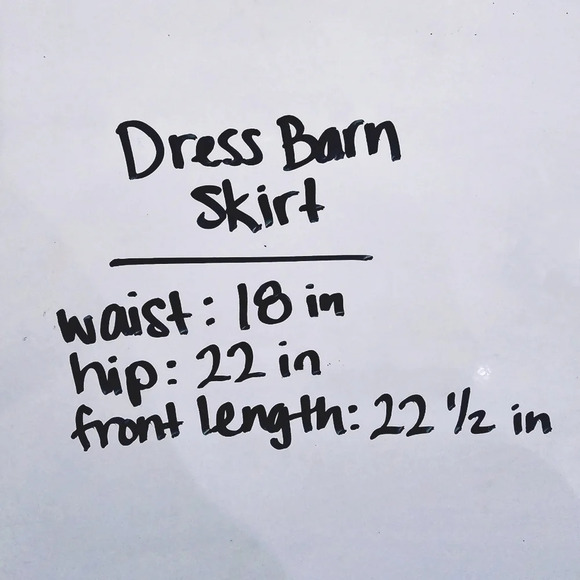 Dress Barn
Skirt
waist: 18 in
hip: 22 in
front length: 22 1/2 in